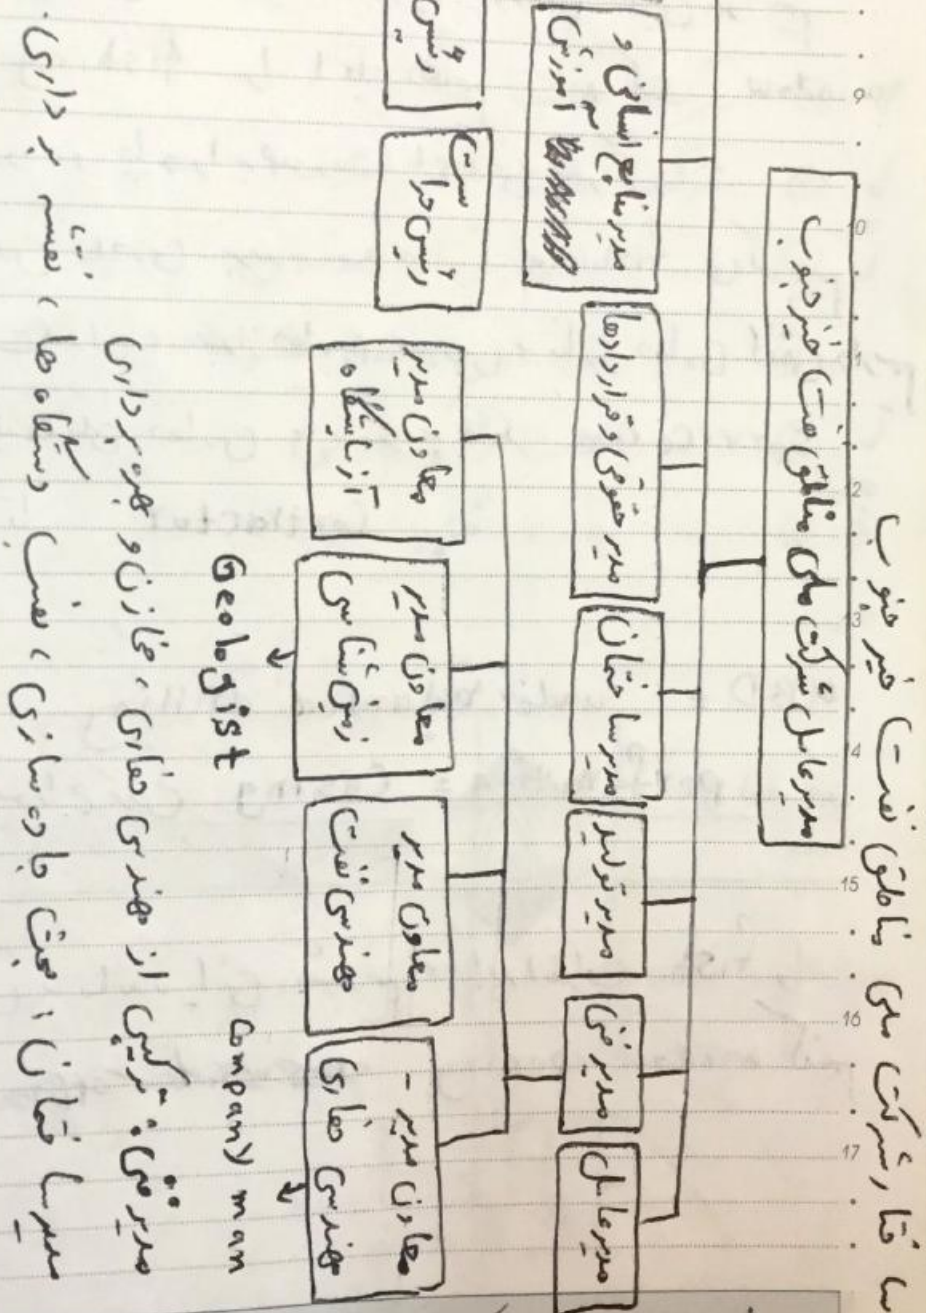 ساختار شرکت ملی مناطق نفت خیز جنوب
مدیر عامل شرکت ملی مناطق نفت خیز جنوب
مدیر عامل
مدیر فنی
مدیر تولید
مدیر ساختمان
مدیر حقوقی و قراردادها
مدیر منابع انسانی و
آموزش
معاون مدیر -
مهندسی حفاری
معاون مدیر
مهندسی نفت
معاون مدیر
زمین شناسی
معاون مدیر
آزمایشگاه
رئیس
Company man
Geologist
مدیر فنی: ترکیبی از مهندسی حفاری، مخازن و بهره برداری
مدیر ساختمان: جهت جاده سازی، نصب دستگاه ها، نقشه بر داری.
9
10
11
12
13
14
15
16
17